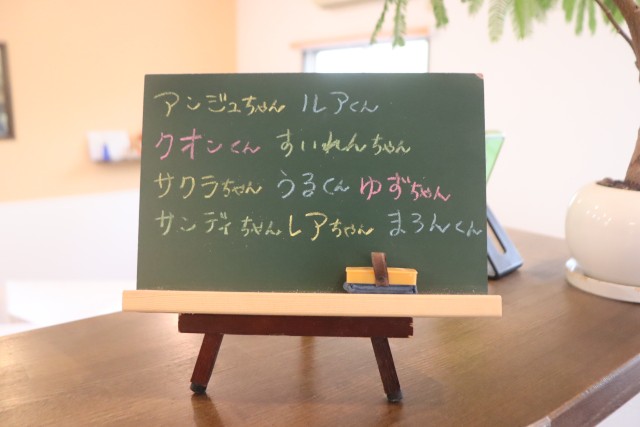 アンジュちゃん ルアくん
クオンくん すいれんちゃん
サクラちゃん うるくん ゆずちゃん
サンディちゃん レアちゃん まろんくん